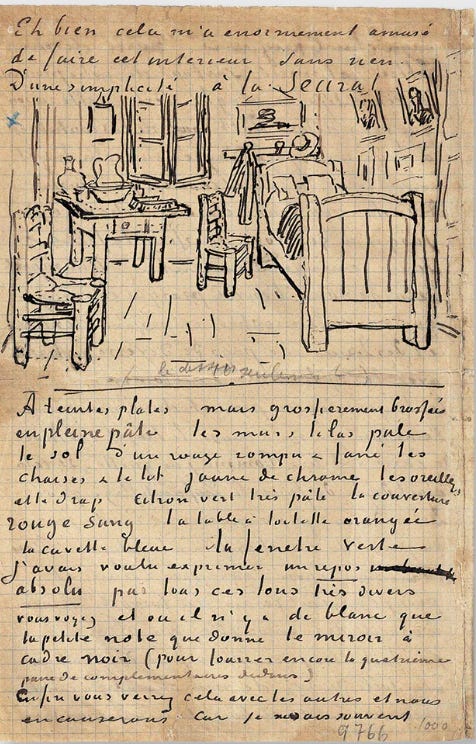 Eh bien cela m'a enormement amusé
de faire cet interieur sans rien.
D'une simplicité à la Seurat
le dessin seulement
A teintes plates mais grossierement brossées
en pleine pâte les murs lilas pale
le sol d'un rouge rompu & fané les
chaises & le lit jaune de chrome les oreillers
et le drap citron vert très pâle la couverture
rouge sang la table à toilette orangée
la cuvette bleue la fenetre verte
J'avais voulu exprimer un repos
absolu par tous ces tons très divers
vous voyez et où il n'y a de blanc que
la petite note que donne le miroir à
cadre noir (pour fourrer encore la quatrième
paire de complementaires dedans.)
Enfin vous verrez cela avec les autres et nous
en causerons car je ne sais souvent
9766 1000